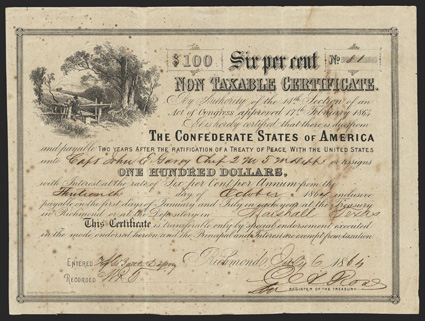 $100 Six per cent No 11
NON TAXABLE CERTIFICATE.
By Authority of the 18th Section of an
Act of Congress approved 17th February 1864
It is hereby certified, that there is due from
THE CONFEDERATE STATES OF AMERICA
and payable TWO YEARS AFTER THE RATIFICATION OF A TREATY OF PEACE, WITH THE UNITED STATES
unto Capt John or assigns
ONE HUNDRED DOLLARS,
with Interest at the rate of Six per Cent per Annum from the
Thirteenth day of October 1864 inclusive
payable on the first days of January and July in each year at the treasury
in Richmond or at the Depository in Marshall Texas
This Certificate is transferable only by special endorsement executed
in the mode endorsed hereon and the Principal and Interest are exempt from taxation
Richmond July 6 1864
ENTERED
RECORDED
REGISTER OF THE TREASURY